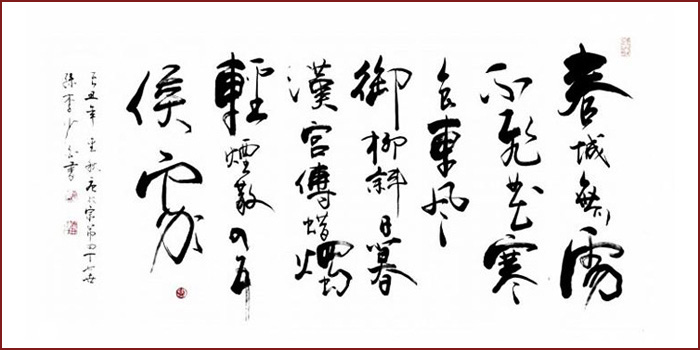 春城無處
不飛花寒
食東風
御柳斜日暮
漢宮傳蜡燭
輕煙散入五
侯家
丑年
孫李少書